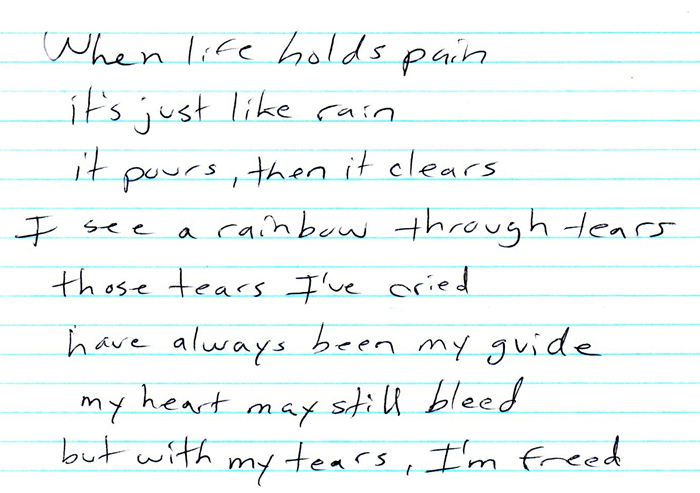 When life holds pain
it's just like rain
it pours, then it clears
I see a rainbow through tears
those tears I've cried
have always been my guide
my heart may still bleed
but with my tears, I'm freed